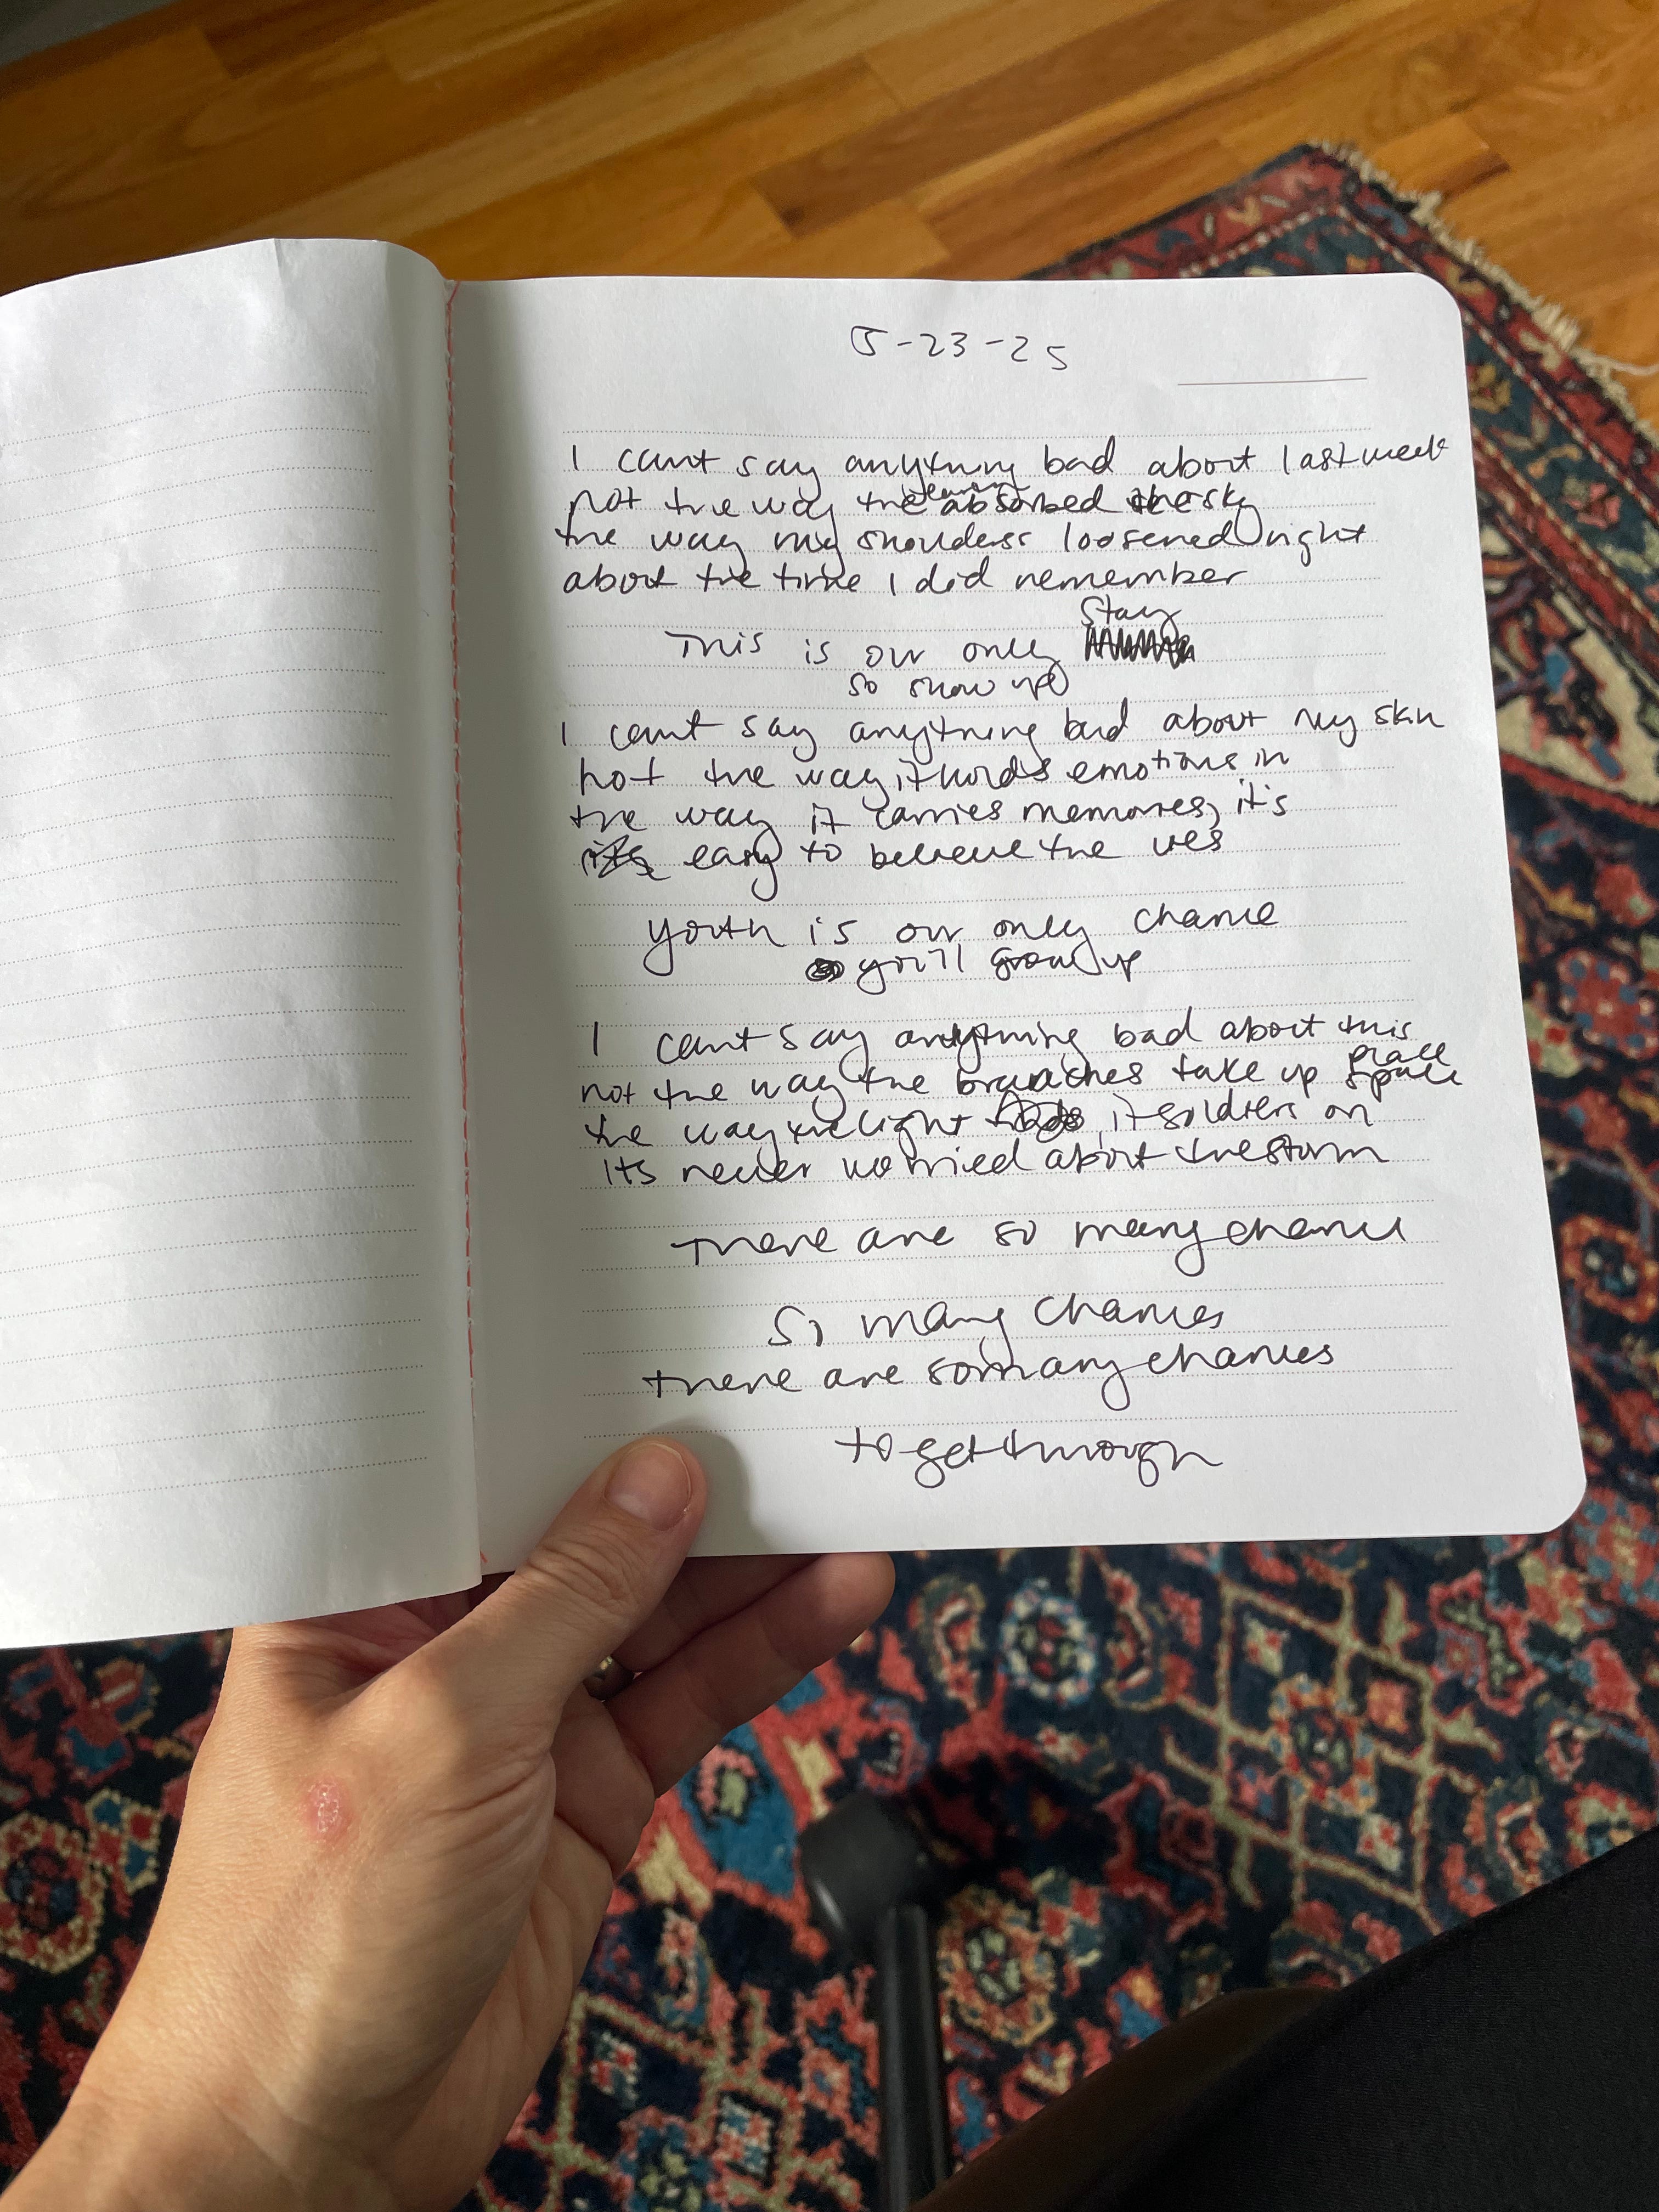 5-23-25
I cant say anything bad about last week
not the way the absorbed the sky
the way my shoulders loosened right
about the time I did remember
Stay
This is our only
so show up
I cant say anything bad about my skin
not the way it holds emotions in
the way it carries memories, it's
its easy to believe the lies
youth is our only chance
you'll grow up
I cant say anything bad about this
not the way the branches take up space
place
the way the light it soldiers on
its never worried about the storm
there are so many chances
So many chances
there are so many chances
to get through